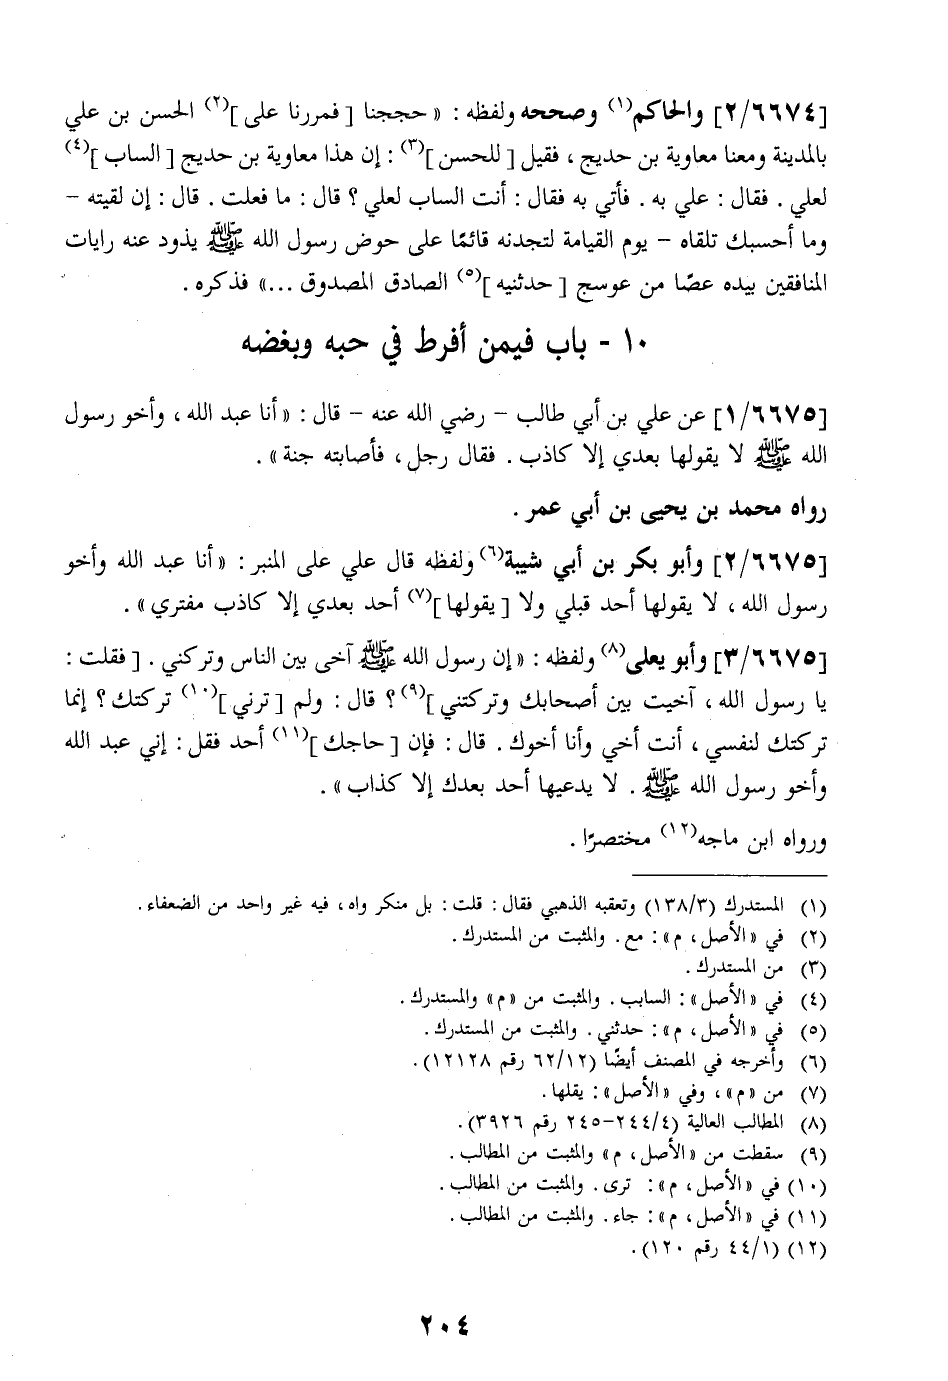 [٢/٦٦٧٤] والحاكم(١) وصححه ولفظه : « حججنا [ فمررنا على ](٢) الحسن بن علي
بالمدينة ومعنا معاوية بن حديج ، فقيل [ للحسن ](٣) : إن هذا معاوية بن حديج [ الساب ](٤)
لعلي . فقال : علي به . فأتي به فقال : أنت الساب لعلي ؟ قال : ما فعلت . قال : إن لقيته –
وما أحسبك تلقاه – يوم القيامة لتجدنه قائمًا على حوض رسول الله ﷺ يذود عنه رايات
المنافقين بيده عصًا من عوسج [ حدثنيه ](٥) الصادق المصدوق ...» فذكره .
١٠ - باب فيمن أفرط في حبه وبغضه
[١/٦٦٧٥] عن علي بن أبي طالب – رضي الله عنه – قال : « أنا عبد الله ، وأخو رسول
الله ﷺ لا يقولها بعدي إلا كاذب . فقال رجل ، فأصابته جنة » .
رواه محمد بن يحيى بن أبي عمر .
[٢/٦٦٧٥] وأبو بكر بن أبي شيبة(٦) ولفظه قال علي على المنبر : « أنا عبد الله وأخو
رسول الله ، لا يقولها أحد قبلي ولا [ يقولها ](٧) أحد بعدي إلا كاذب مفتري » .
[٣/٦٦٧٥] وأبو يعلى(٨) ولفظه : « إن رسول الله ﷺ آخى بين الناس وتركني . [ فقلت :
يا رسول الله ، آخيت بين أصحابك وتركتني ](٩) ؟ قال : ولم [ ترني ](١٠) تركتك ؟ إنما
تركتك لنفسي ، أنت أخي وأنا أخوك . قال : فإن [ حاجك ](١١) أحد فقل : إني عبد الله
وأخو رسول الله ﷺ . لا يدعيها أحد بعدك إلا كذاب » .
ورواه ابن ماجه(١٢) مختصرًا .
(١) المستدرك (١٣٨/٣) وتعقبه الذهبي فقال : قلت : بل منكر واه ، فيه غير واحد من الضعفاء .
(٢) في «الأصل ، م» : مع . والمثبت من المستدرك .
(٣) من المستدرك .
(٤) في «الأصل» : السابب . والمثبت من «م» والمستدرك .
(٥) في «الأصل ، م» : حدثني . والمثبت من المستدرك .
(٦) وأخرجه في المصنف أيضًا (٦٢/١٢ رقم ١٢١٢٨) .
(٧) من «م» ، وفي «الأصل» : يقلها .
(٨) المطالب العالية (٢٤٤/٤–٢٤٥ رقم ٣٩٢٦) .
(٩) سقطت من «الأصل ، م» والمثبت من المطالب .
(١٠) في «الأصل ، م» : ترى . والمثبت من المطالب .
(١١) في «الأصل ، م» : جاء . والمثبت من المطالب .
(١٢) (٤٤/١ رقم ١٢٠) .
٢٠٤